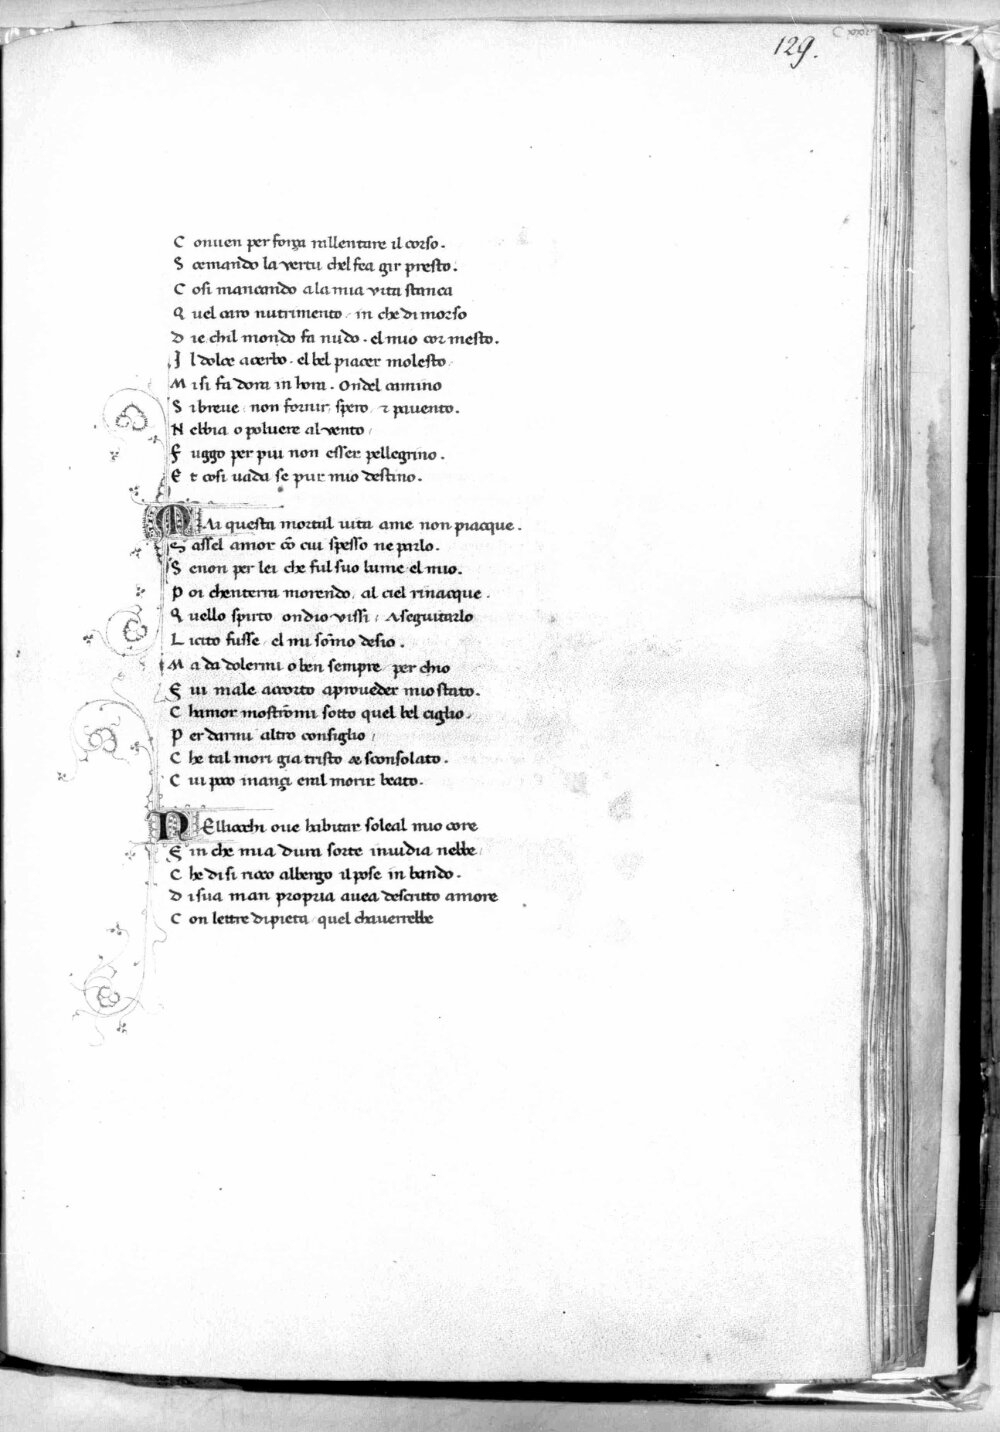 129.
C onuen per forza rallentare il corso.
S cemando la vertu chel fea gir presto.
C osi mancando ala mia vita stanca
Q uel caro nutrimento / in che di morso
D ie, chil mondo fa nudo. el mio cor mesto.
I l dolce acerbo. el bel piacer molesto /
M isi fa dora in hora. Ondel camino
S i breue / non fornir, spero, ⁊ pauento.
N ebbia o poluere al vento /
F uggo per piu non esser pellegrino.
E t cosi uada se pur mio destino.
MAi questa mortal uita ame non piacque.
S assel amor cō cui spesso ne parlo.
S enon per lei che ful suo lume / el mio.
P oi chenterra morendo, al ciel rinacque.
Q uello spirto ondio vissi / Aseguitarlo
L icito fusse / el mi sōmo desio.
M a da dolermi o ben sempre / per chio
F ui male accorto aproueder mio stato.
C hamor mostrōmi sotto quel bel ciglio /
P er darmi altro consiglio /
C he tal mori gia tristo ⁊ sconsolato.
C ui poco inançi eral morir beato.
NElliocchi oue habitar soleal mio core
F in che mia dura sorte inuidia nebbe /
C he di si ricco albergo il pose in bando.
D i sua man propria auea descritto amore
C on lettre di pieta / quel chauerrebbe